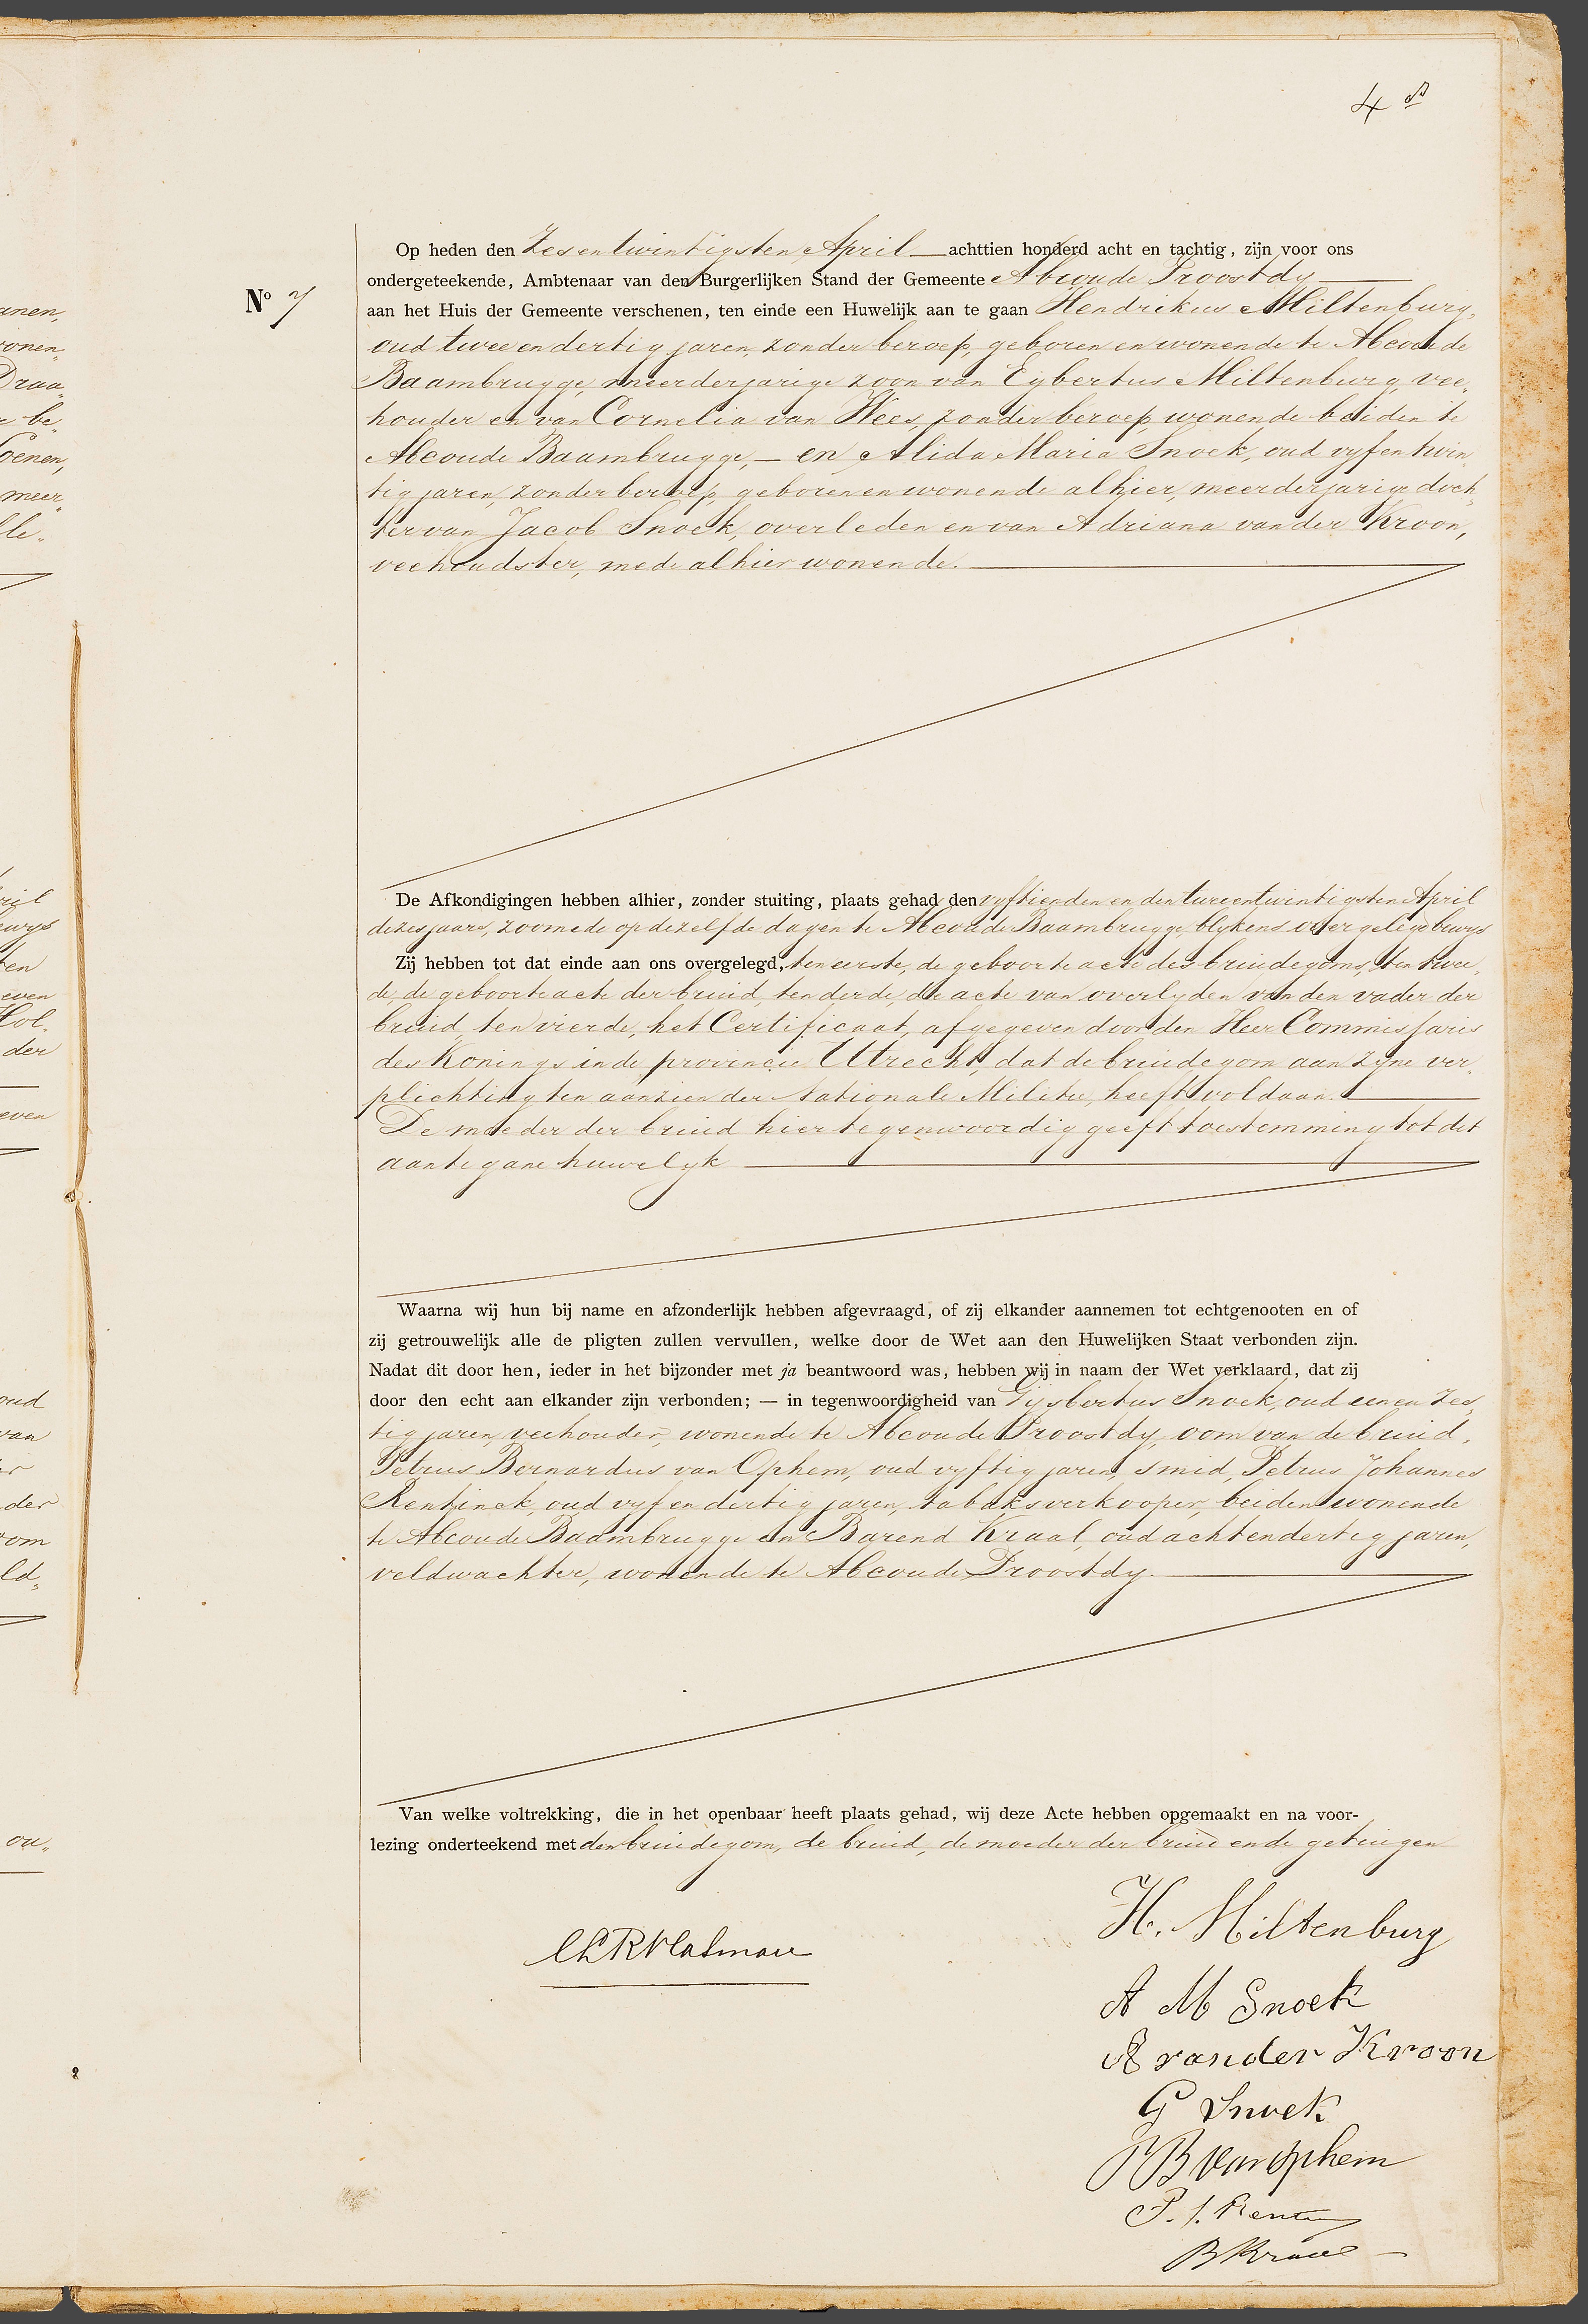 4
Op heden den Zesentwintigsten April achttien honderd acht en tachtig, zijn voor ons
ondergeteekende, Ambtenaar van den Burgerlijken Stand der Gemeente Abcoude Proostdy
Nº 7
aan het Huis der Gemeente verschenen, ten einde een Huwelijk aan te gaan Hendrikus Miltenburg,
oud twee en dertig jaren, zonder beroep, geboren en wonende te Abcoude
Baambrugge, meerderjarige zoon van Egbertus Miltenburg, vee„
houder en van Cornelia van Wees, zonder beroep wonende beiden te
Abcoude Baambrugge, — en Alida Maria Snoek, oud vyf en twin„
tig jaren, zonder beroep, geboren en wonende alhier, meerderjarige doch„
ter van Jacob Snoek, overleden en van Adriana van der Kroon,
veehoudster, mede alhier wonende.
De Afkondigingen hebben alhier, zonder stuiting, plaats gehad den vyftienden en den tweentwintigsten April
dezes jaars, zoomede op dezelfde dagen te Abcoude Baambrugge blykens overgelegd bewys
Zij hebben tot dat einde aan ons overgelegd, ten eerste, de geboorte acte des bruidegoms, ten twee„
de, de geboorte acte der bruid, ten derde, de acte van overlyden van den vader der
bruid, ten vierde, het Certificaat, afgegeven door den Heer Commissaris
des Konings in de provincie Utrecht, dat de bruidegom aan zyne ver„
plichting ten aanzien der Nationale Militie, heeft voldaan.
De moeder der bruid hier tegenwoordig geeft toestemming tot dit
aantegane huwelyk
Waarna wij hun bij name en afzonderlijk hebben afgevraagd, of zij elkander aannemen tot echtgenooten en of
zij getrouwelijk alle de pligten zullen vervullen, welke door de Wet aan den Huwelijken Staat verbonden zijn.
Nadat dit door hen, ieder in het bijzonder met ja beantwoord was, hebben wij in naam der Wet verklaard, dat zij
door den echt aan elkander zijn verbonden; — in tegenwoordigheid van Gijsbertus Snoek, oud een en zes„
tig jaren, veehouder, wonende te Abcoude Proostdy, oom van de bruid,
Petrus Bernardus van Ophem, oud vyftig jaren, smid, Petrus Johannes
Rentinck, oud vyf en dertig jaren, tabaksverkooper, beiden wonende
te Abcoude Baambrugge en Barend Kraal, oud acht en dertig jaren,
veldwachter, wonende te Abcoude Proostdy.
Van welke voltrekking, die in het openbaar heeft plaats gehad, wij deze Acte hebben opgemaakt en na voor-
lezing onderteekend met den bruidegom, de bruid, de moeder der bruid en de getuigen
H. Miltenburg
A M Snoek
A van der Kroon
G Snoek
P B van Ophem
P. J. Rentin
B Kraal
anen,
wonen„
Draa„
be„
oenen,
meer„
lle.
ril
ewys
ten
even
Hol.
der
even
oud
van
er
der
oom
ld„
ou„